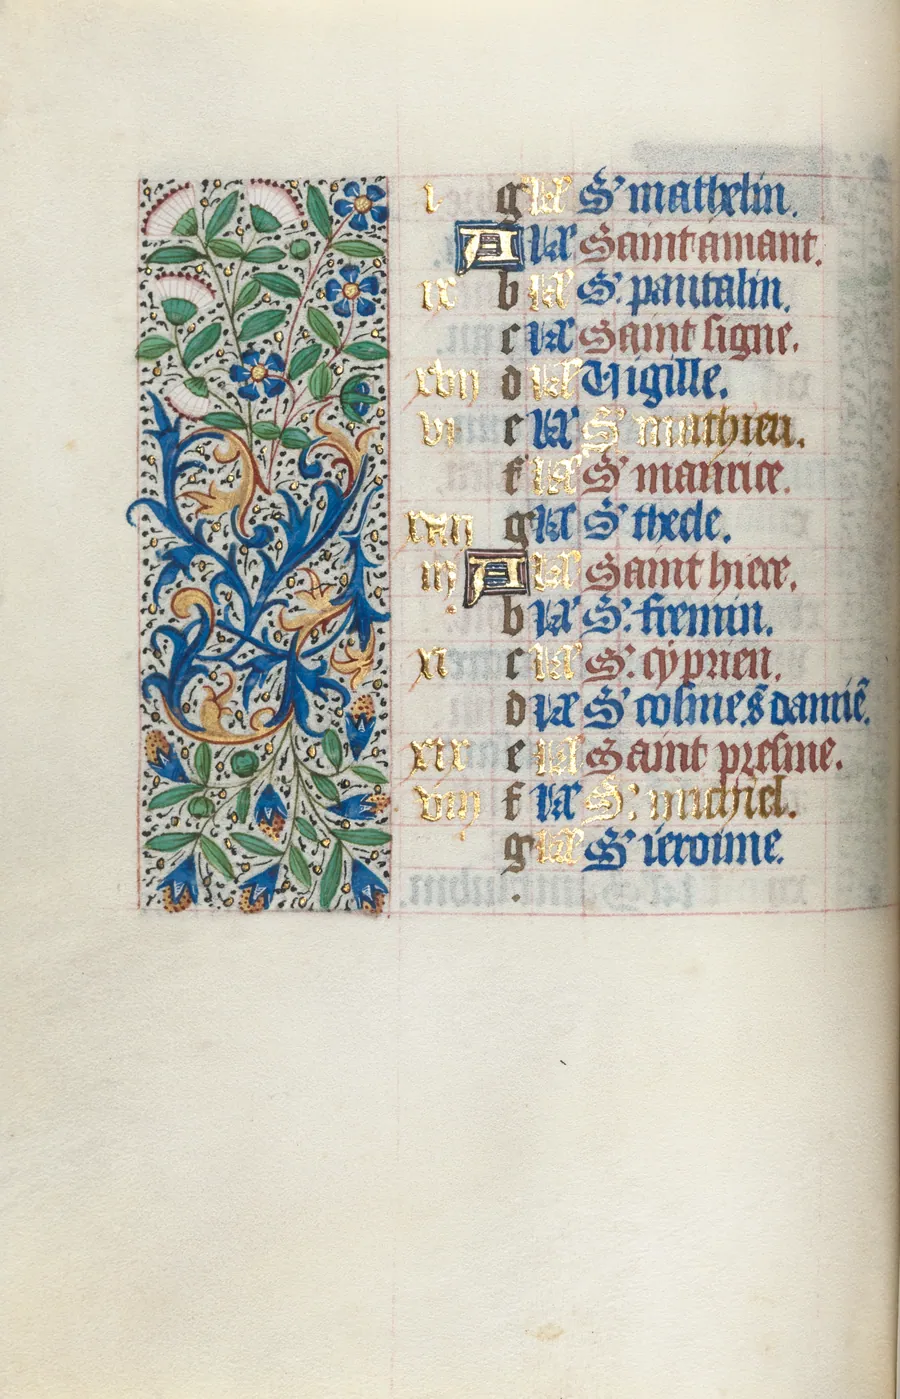 i g kł S' mathelin.
A kł Saint amant.
ix b kł S. pantalin.
c kł Saint signe.
xvii d kł Vigille.
vi e kł S' mathieu.
f kł S' maurice.
xiiii g kł S' thecle.
iii A kł Saint hiere.
b kł S. fremin.
xi c kł S. cyprien.
d kł S' cosme s damiē.
xix e kł Saint presme.
viii f kł S. michiel.
g kł S' ieroime.